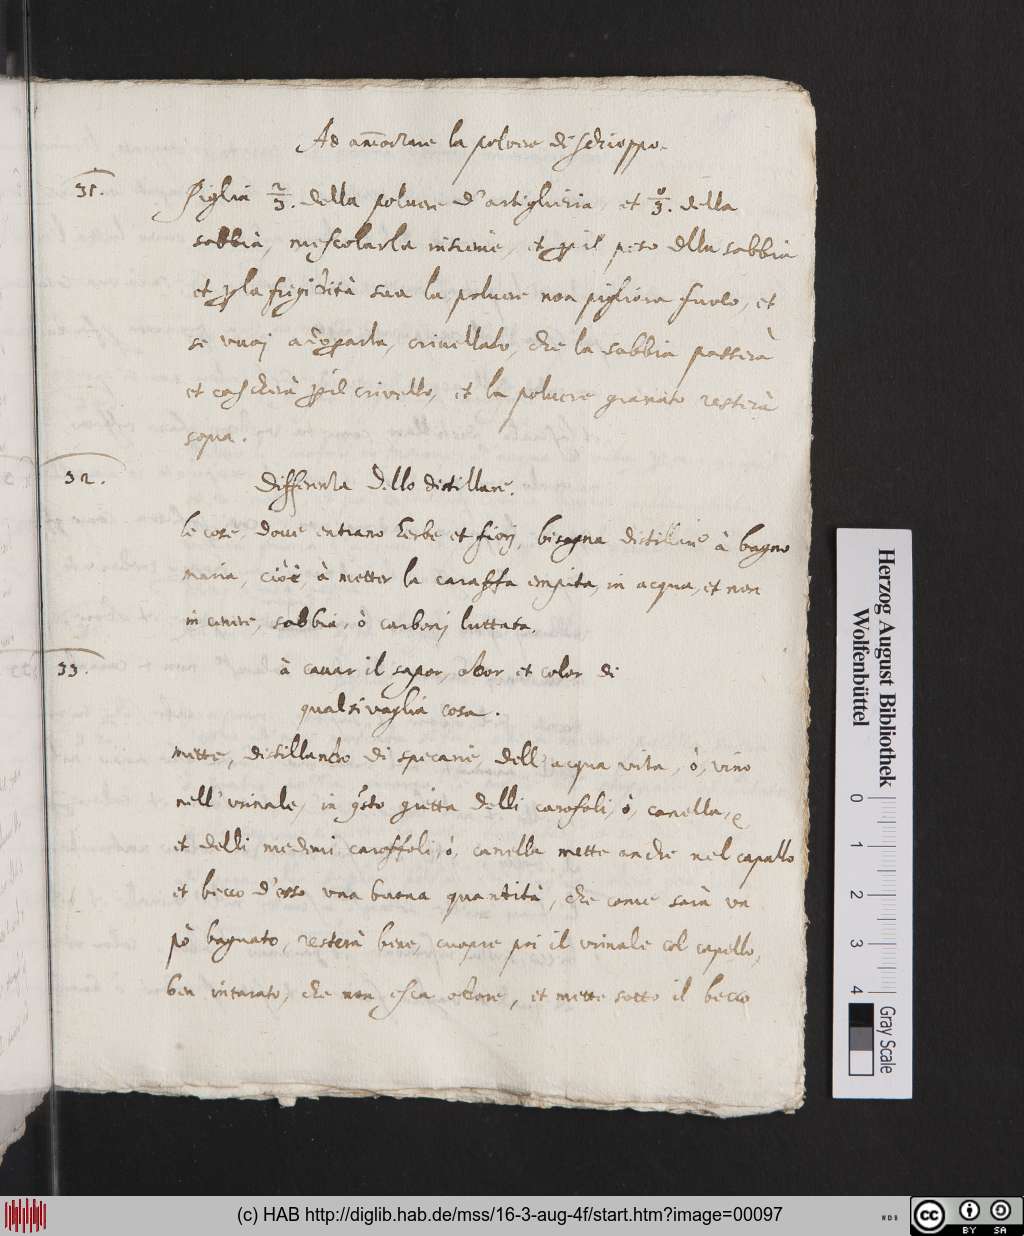 Ad am̄orzare la polvere di schioppo.
31.
Piglia 2/3. della poluere d'artiglieria, et 0/3. della
sabbia, mescolarla insieme, et ꝑ il peso della sabbia
et ꝑ la frigidità sua la poluere non pigliora fuoco, et
se vuoi crivellato, che la sabbia passerà
et cascherà ꝑ il crivello, et la poluere granato resterà
sopra.
32.
Differenza dello distillare.
le cose, doue entrano herbe et fiorj, bisogna distillare à bagno
maria, cioè, à metter la caraffa empita, in acqua, et non
in cenere, sabbia, ò carbonj luttata.
33.
à cauar il sapor, odor et color di
qualsivaglia cosa.
mette, distillando di specarie, dell'acqua vita, ò, vino
nell'vrinale, in q̃sto gietta delli carofoli, ò, canella,
et delli medemi caroffoli, ò, canella mette anche nel capello
et becco d'esso vna buona quantità, che come sarà vn
pò bagnato, resterà bene, cuopre poi il vrinale col capello,
ben intarato, che non esca odore, et mette sotto il becco
Herzog August Bibliothek
Wolfenbüttel
0 1 2 3 4
Gray Scale
(c) HAB http://diglib.hab.de/mss/16-3-aug-4f/start.htm?image=00097
WDB
cc BY SA